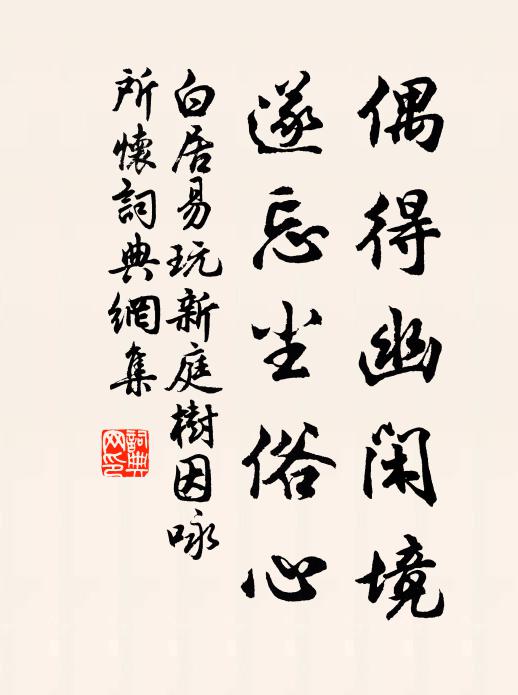 偶得幽闲境
遂忘尘俗心
白居易玩新庭樹因咏
所懷詞典網集
詞典
网印